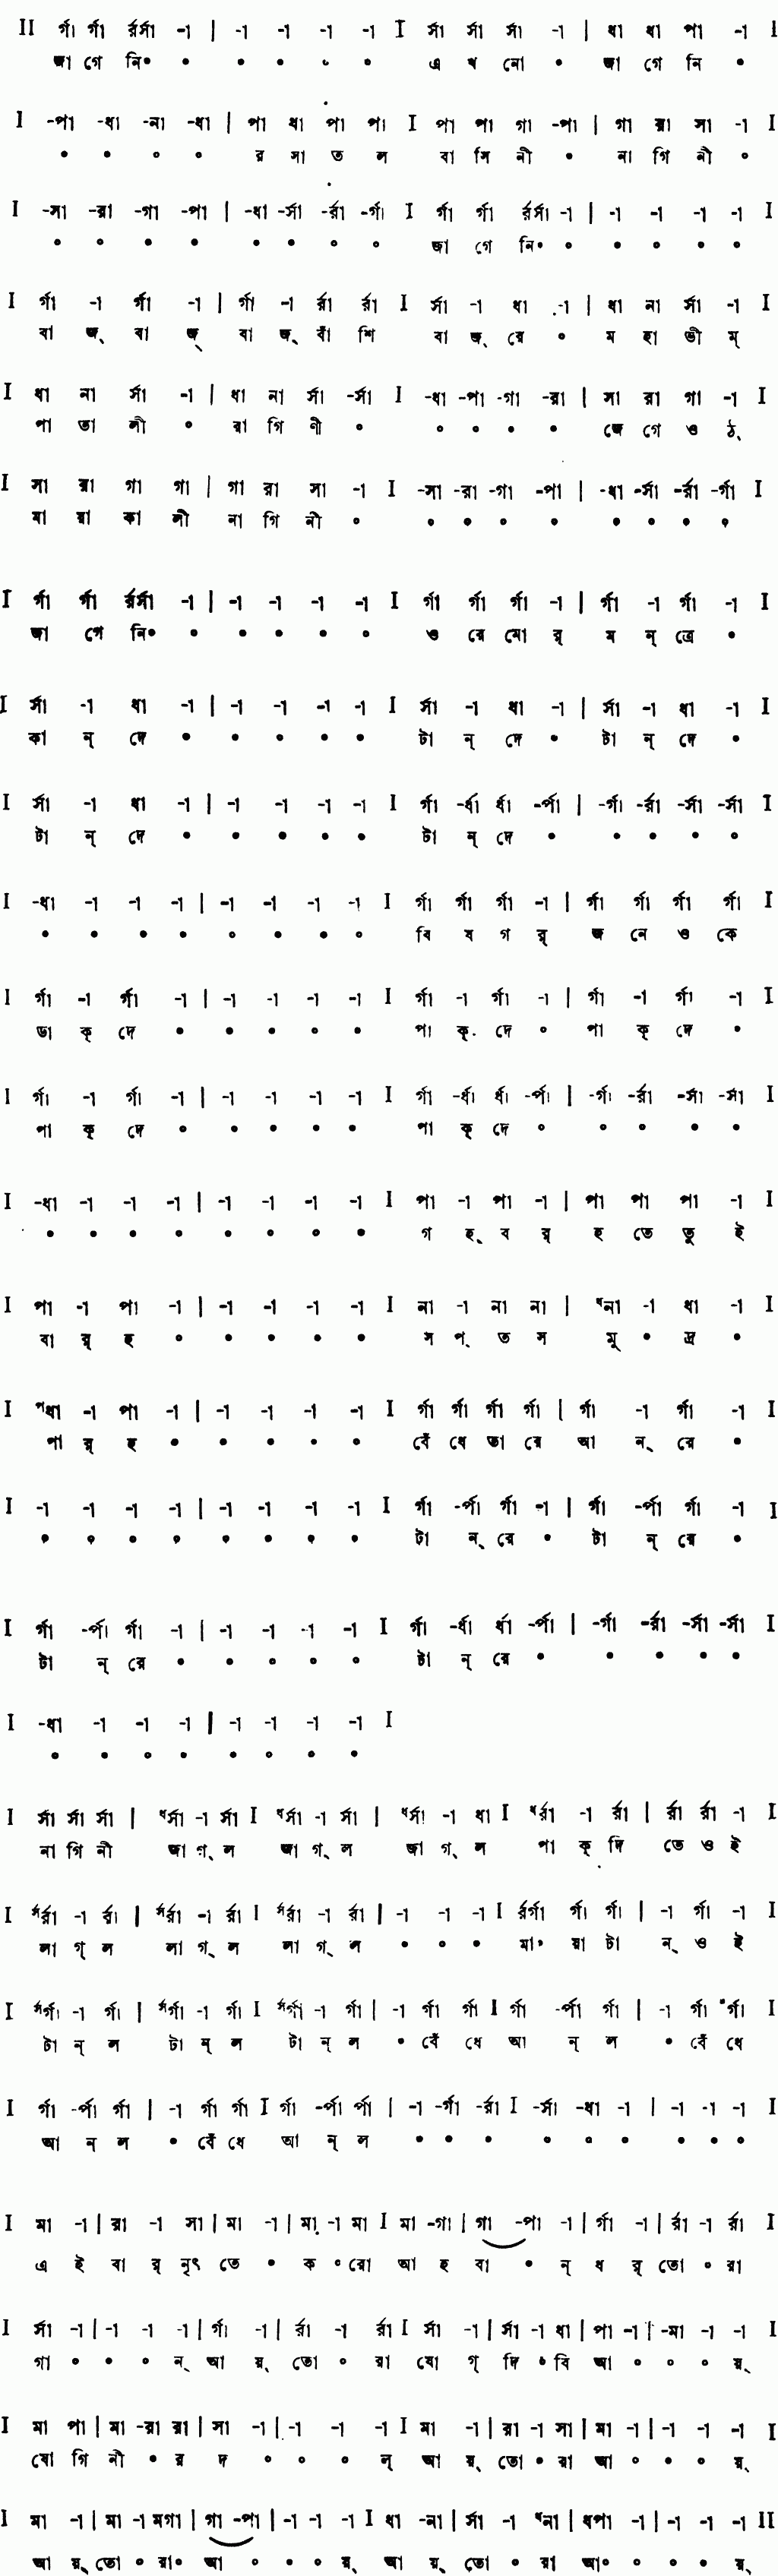 II র্গা র্গা র্রর্সা -া | -া -া -া -া I র্সা র্সা র্সা -া | ধা ধা পা -া I
জা গে নি॰ • • • • • এ খ নো • জা গে নি •
I -পা -ধা -না -ধা | পা ধা পা পা I পা পা গা -পা | গা রা সা -া I
• • ॰ ॰ র সা ত ল বা সি নী • না গি নী ॰
I -সা -রা -গা -পা | -ধা -র্সা -র্রা -র্গা I র্গা র্গা র্রর্সা -া | -া -া -া -া I
॰ ॰ • • • • ॰ ॰ জা গে নি॰ • • • • •
I র্গা -া র্গা -া | র্গা -া র্রা র্রা I র্সা -া ধা -া | ধা না র্সা -া I
বা জ্ বা জ্ বা জ্ বাঁ শি বা জ্ রে ॰ ম হা ভী ম্
I ধা না র্সা -া | ধা না র্সা -র্সা I -ধা -পা -গা -রা | সা রা গা -া I
পা তা লী • রা গি ণী ॰ ॰ • • • জে গে ও ঠ্
I সা রা গা গা | গা রা সা -া I -সা -রা -গা -পা | -ধা -র্সা -র্রা -র্গা I
মা য়া কা লী না গি নী ॰ • • ॰ • • • • •
I র্গা র্গা র্রর্সা -া | -া -া -া -া I র্গা র্গা র্গা -া | র্গা -া র্গা -া I
জা গে নি॰ • • • • • ও রে মো র্ ম ন্ ত্রে •
I র্সা -া ধা -া | -া -া -া -া I র্সা -া ধা -া | র্সা -া ধা -া I
কা ন্ দে • • • • • টা ন্ দে • টা ন্ দে •
I র্সা -া ধা -া | -া -া -া -া I র্গা -র্ধা র্ধা -র্পা | -র্গা -র্রা -র্সা -র্সা I
টা ন্ দে • • • • • টা ন্ দে • • • • ॰
I -ধা -া -া -া | -া -া -া -া I র্গা র্গা র্গা -া | র্গা র্গা র্গা র্গা I
• • • • ॰ • • ॰ বি ষ গ র্ জ নে ও কে
I র্গা -া র্গা -া | -া -া -া -া I র্গা -া র্গা -া | র্গা -া র্গা -া I
ডা ক্ দে • • • ॰ • পা ক্ দে ॰ পা ক্ দে •
I র্গা -া র্গা -া | -া -া -া -া I র্গা -র্ধা র্ধা -র্পা | -র্গা -র্রা -র্সা -র্সা I
পা ক্ দে ॰ • • • • পা ক্ দে ॰ ॰ ॰ • •
I -ধা -া -া -া | -া -া -া -া I পা -া পা -া | পা পা পা -া I
• • • • • • ॰ • গ হ্ ব র্ হ তে তু ই
I পা -া পা -া | -া -া -া -া I না -া না না | ধনা -া ধা -া I
বা র্ হ ॰ • • • • স প্ ত স মু • দ্র •
I পধা -া পা -া | -া -া -া -া I র্গা র্গা র্গা র্গা | র্গা -া র্গা -া I
পা র্ হ • • • • • বেঁ ধে তা রে আ ন্ রে •
I -া -া -া -া | -া -া -া -া I র্গা -র্পা র্গা -া | র্গা -র্পা র্গা -া I
• • • • • • • • টা ন্ রে • টা ন্ রে •
I র্গা -র্পা র্গা -া | -া -া -া -া I র্গা -র্ধা র্ধা -র্পা | -র্গা -র্রা -র্সা -র্সা I
টা ন্ রে • • ॰ ॰ ॰ টা ন্ রে • • • • •
I -ধা -া -া -া | -া -া -া -া I
• • ॰ • • ॰ • •
I র্সা র্সা র্সা | ধর্সা -া র্সা I ধর্সা -া র্সা | ধর্সা -া ধা I ধর্রা -া র্রা | র্রা র্রা -া I
না গি নী জা গ্ ল জা গ্ ল জা গ্ ল পা ক্ দি তে ও ই
I র্সর্রা -া র্রা | র্সর্রা -া র্রা I র্সর্রা -া র্রা | -া -া -া I র্রর্গা র্গা র্গা | -া র্গা -া I
লা গ্ ল লা গ্ ল লা গ্ ল • ॰ • মা॰ য়া টা ন্ ও ই
I র্সর্গা -া র্গা | র্সর্গা -া র্গা I র্সর্গা -া র্গা | -া র্গা র্গা I র্গা -র্পা র্গা | -া র্গা র্গা I
টা ন্ ল টা ন্ ল টা ন্ ল • বেঁ ধে আ ন্ ল • বেঁ ধে
I র্গা -র্পা র্গা | -া র্গা র্গা I র্গা -র্পা র্পা | -া -র্গা -র্রা I -র্সা -ধা -া | -া -া -া I
আ ন ল • বেঁ ধে আ ন্ ল • • • ॰ ॰ • • • •
I মা -া | রা -া সা | মা -া | মা -া মা I মা -গা | গা -পা -া | র্গা -া | র্রা -া র্রা I
এ ই বা র্ নৃৎ তে • ক ॰ রো আ হ বা • ন্ ধ র্ তো ॰ রা
I র্সা -া | -া -া -া | র্গা -া | র্রা -া র্রা I র্সা -া | র্সা -া ধা | পা -া | -মা -া -া I
গা • • ॰ ন্ আ য়্ তো ॰ রা যো গ্ দি ॰ বি আ ॰ ॰ ॰ য়্
I মা পা | মা -রা রা | সা -া | -া -া -া I মা -া | রা -া সা | মা -া | -া -া -া I
যো গি নী • র দ ॰ ॰ ॰ ল্ আ য়্ তো • রা আ ॰ • • য়্
I মা -া | মা -া মগা | গা -পা | -া -া -া I ধা -না | র্সা -া ধনা | ধপা -া | -া -া -া II
আ য়্ তো ॰ রা॰ আ ॰ • ॰ য়্ আ য়্ তো • রা আ॰ ॰ • • য়্